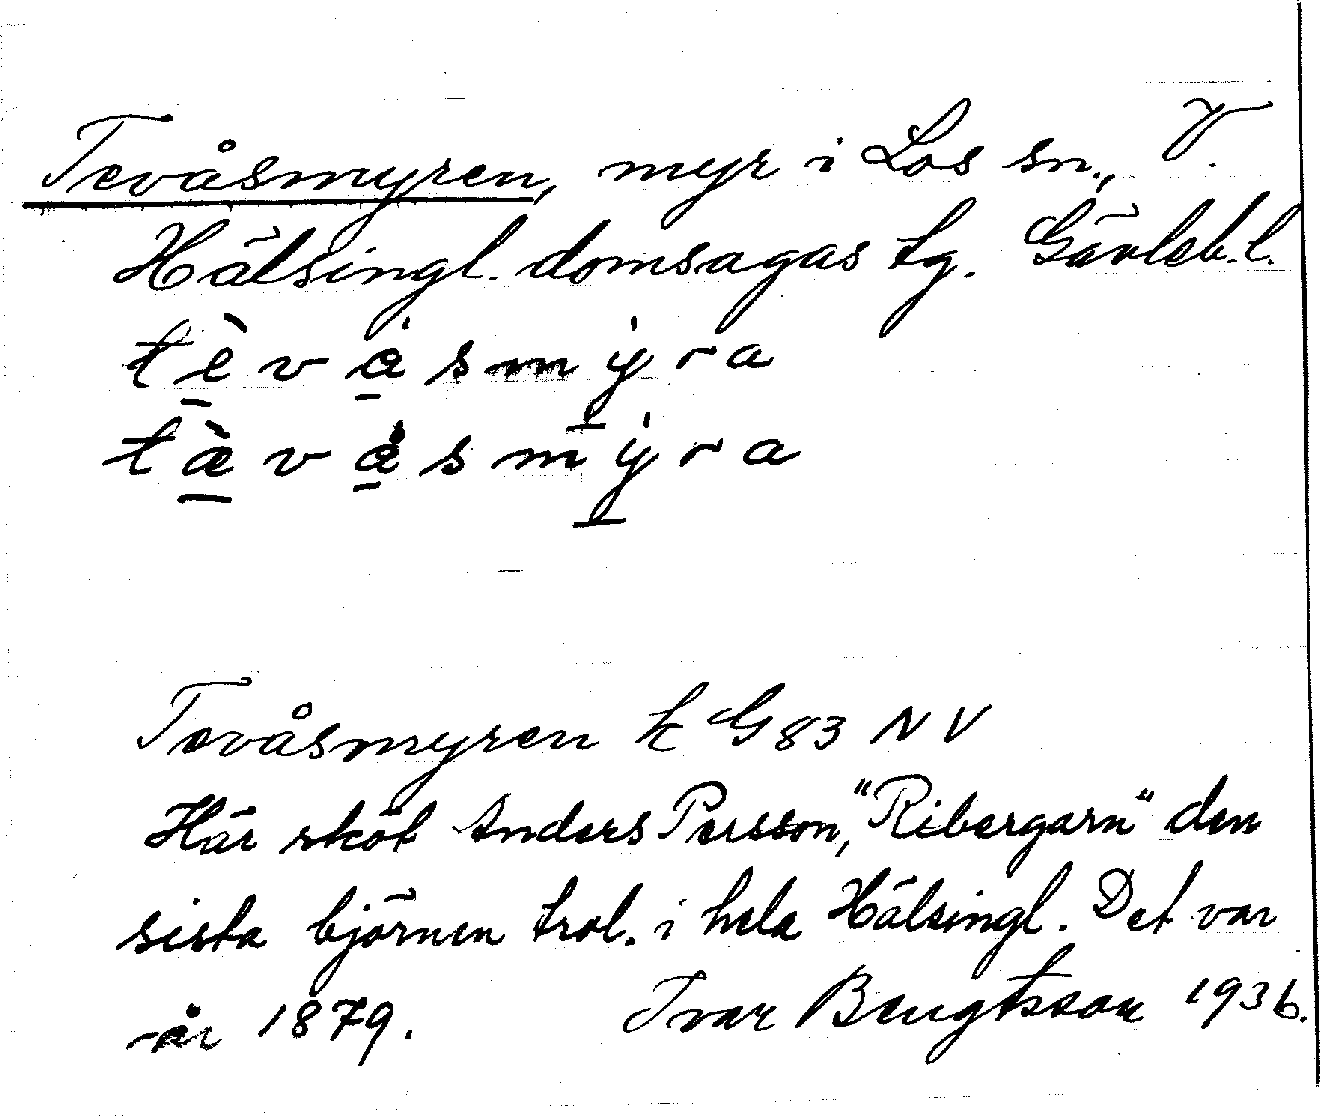 Tevåsmyren, myr i Los sn., V.
Hälsingl. domsagas tg. Gävleb. l.
tèvåsmyra
tàvåsmyra
Tevåsmyren k G 83 NV
Här sköt Anders Persson, "Ribergarn" den
sista björnen trol. i hela Hälsingl. Det var
år 1879. Ivar Bengtsson 1936.